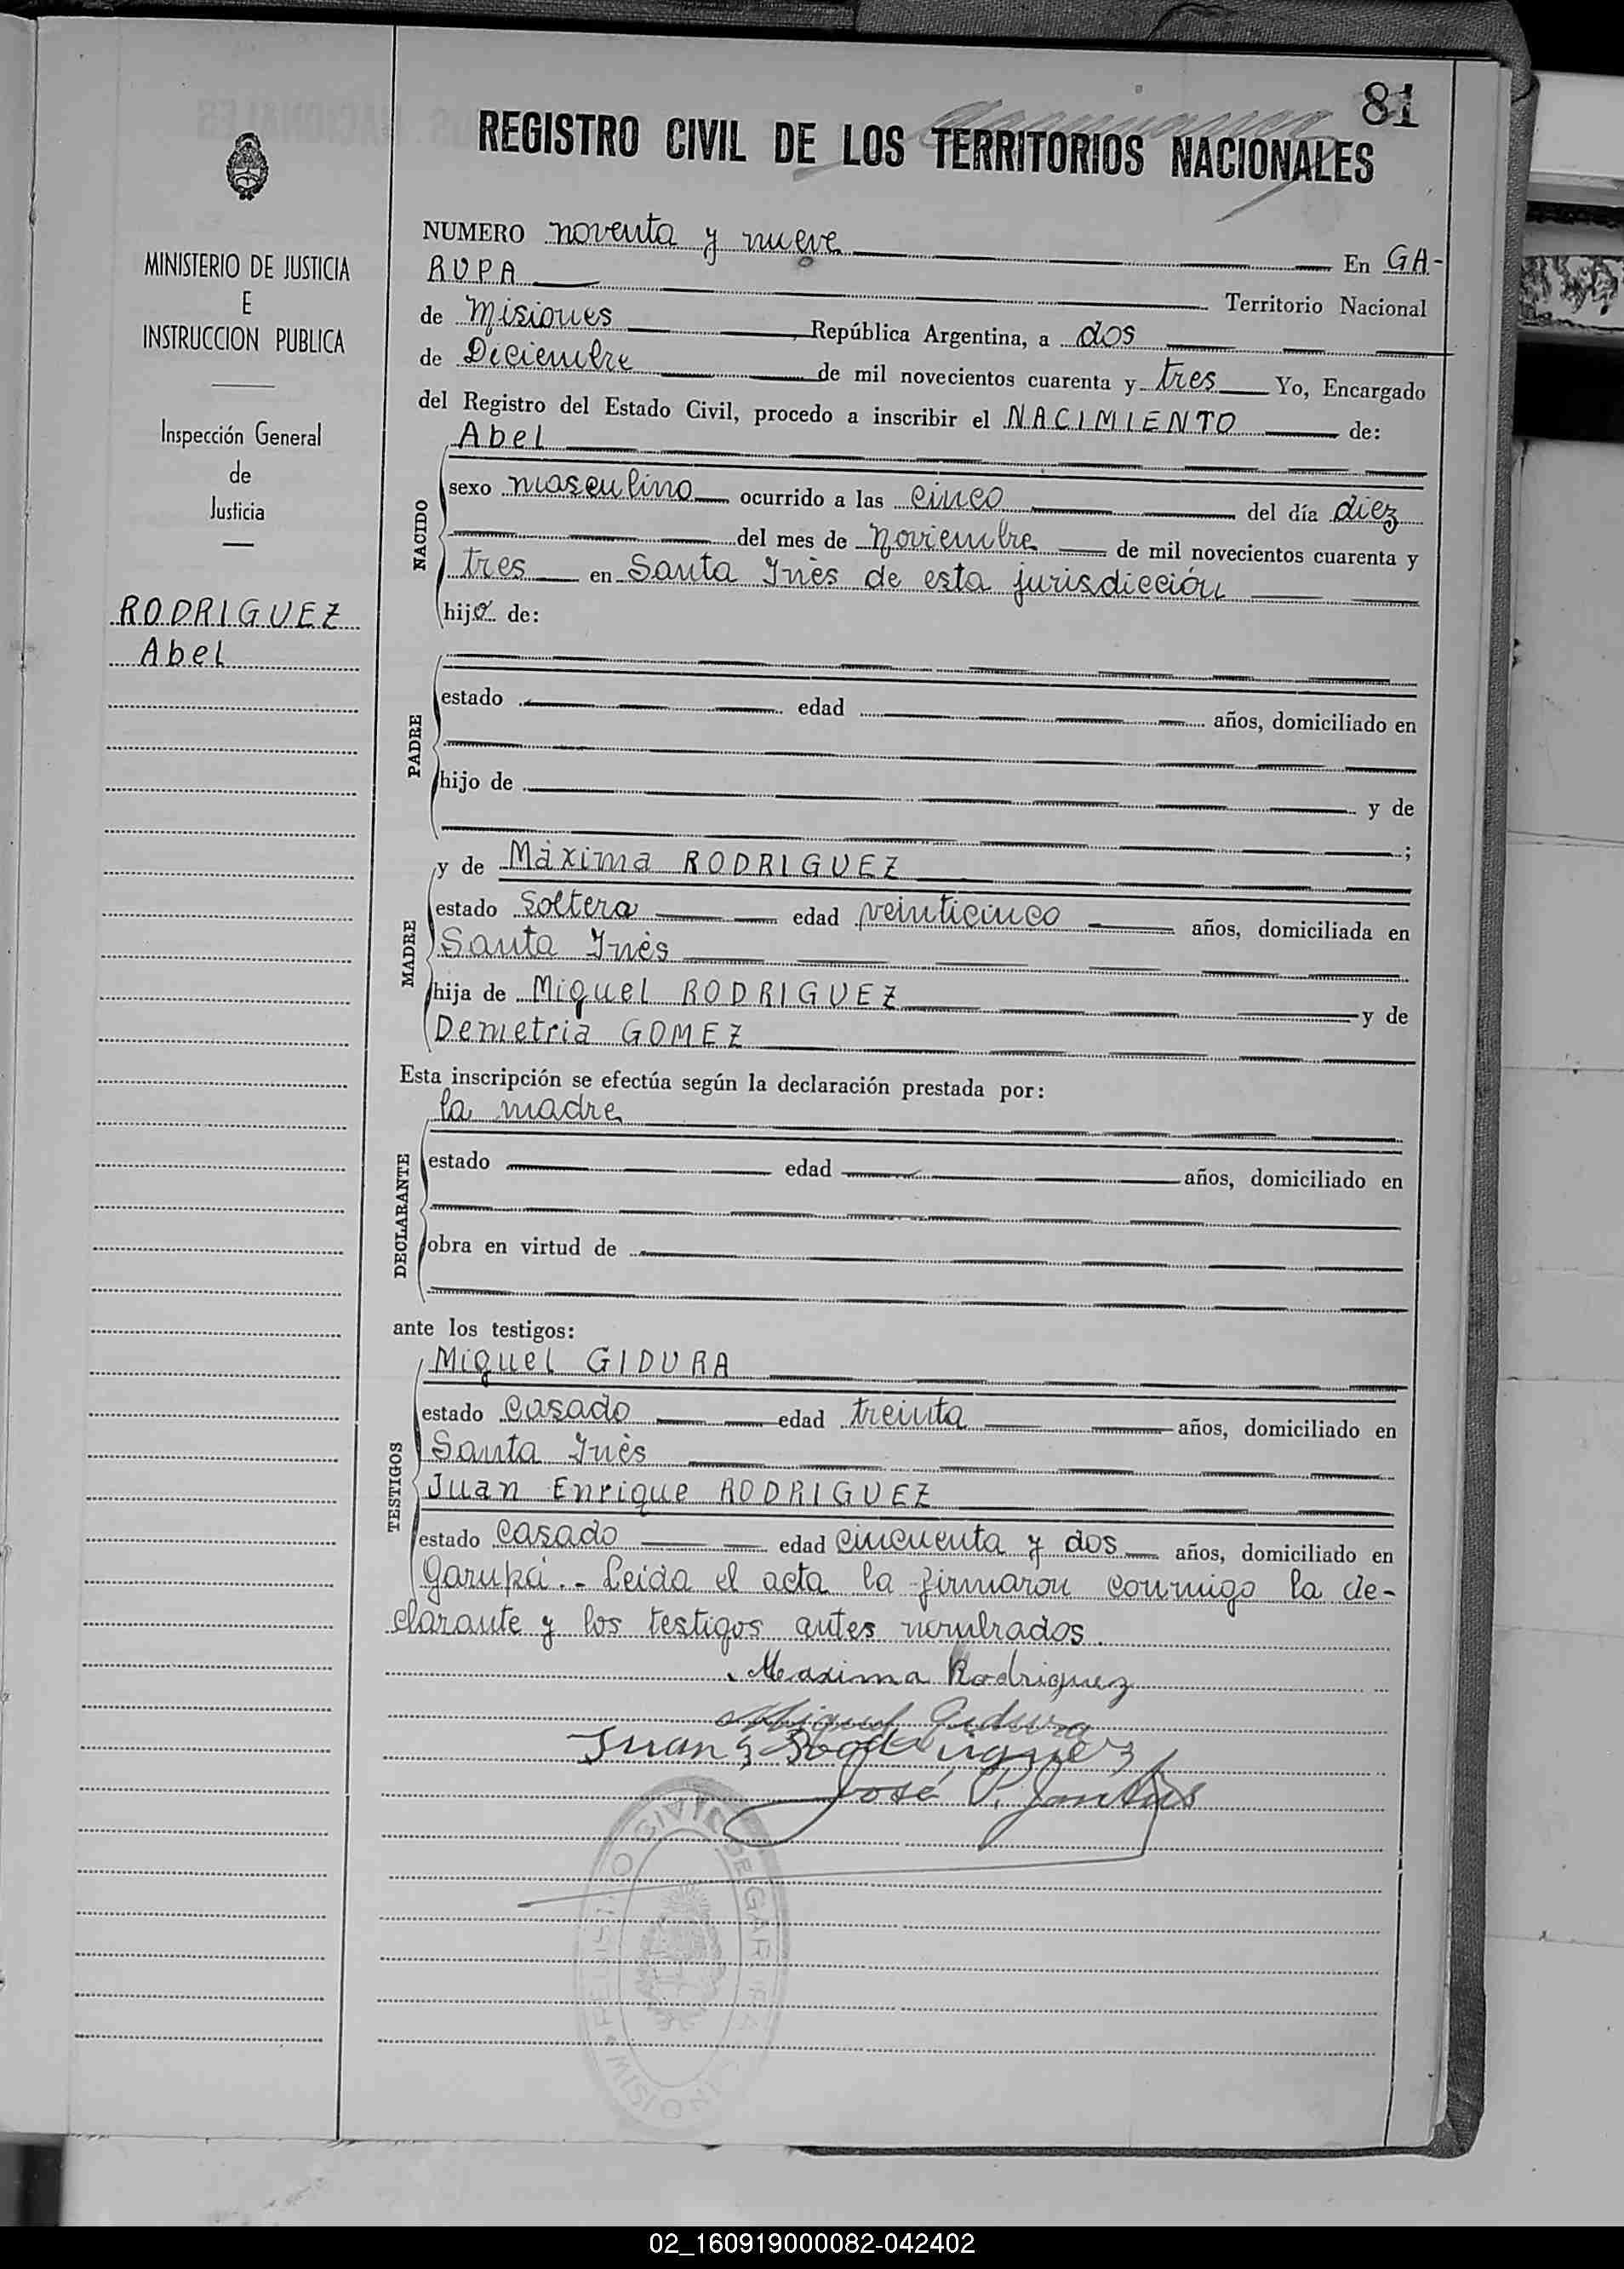 81
REGISTRO CIVIL DE LOS TERRITORIOS NACIONALES
MINISTERIO DE JUSTICIA
E
INSTRUCCION PUBLICA
Inspección General
de
Justicia
RODRIGUEZ
Abel
NUMERO noventa y nueve En GA-
RUPA Territorio Nacional
de Misiones República Argentina, a dos
de Diciembre de mil novecientos cuarenta y tres Yo, Encargado
del Registro del Estado Civil, procedo a inscribir el NACIMIENTO de:
NACIDO
Abel
sexo masculino ocurrido a las cinco del día diez
del mes de Noviembre de mil novecientos cuarenta y
tres en Santa Inès de esta jurisdicción
hijo de:
PADRE
estado edad años, domiciliado en
hijo de y de
;
MADRE
y de Màxima RODRIGUEZ
estado Soltera edad veinticinco años, domiciliada en
Santa Inès
hija de Miguel RODRIGUEZ y de
Demetria GOMEZ
Esta inscripción se efectúa según la declaración prestada por:
DECLARANTE
la madre
estado edad años, domiciliado en
obra en virtud de
ante los testigos:
TESTIGOS
Miguel GIDURA
estado casado edad treinta años, domiciliado en
Santa Inès
Juan Enrique RODRIGUEZ
estado casado edad cincuenta y dos años, domiciliado en
Garupá.- Leida el acta la firmaron conmigo la de-
clarante y los testigos antes nombrados.
Maxima Rodriguez
Miguel Gidura
Juan E Rodriguez
José P.
CIVIL DE GARUPA
MISIONES
02_160919000082-042402